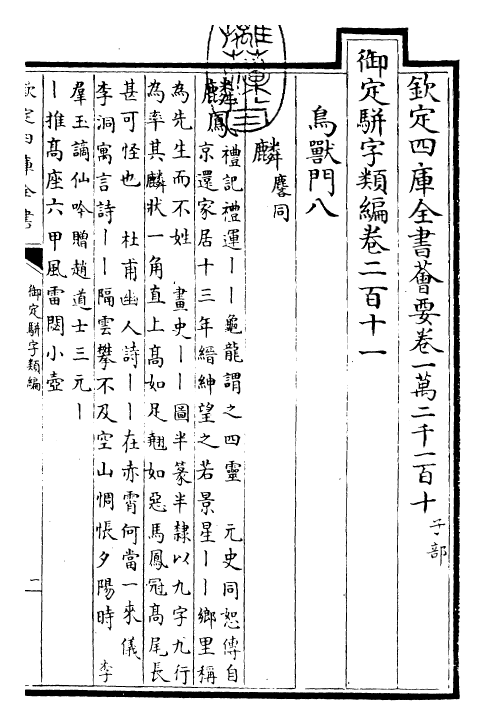 欽定四庫全書薈要卷一萬二千一百十 子部
御定駢字類編卷二百十一
鳥獸門八
麟 麐同
麟鳳 禮記禮運丨丨龜龍謂之四靈 元史同恕傳自
京還家居十三年縉紳望之若景星丨丨鄉里稱
為先生而不姓 畫史丨丨圖半篆半隸以九字九行
為率其麟狀一角直上高如足翹如惡馬鳳冠高尾長
甚可怪也 杜甫幽人詩丨丨在赤霄何當一來儀
李洞寓言詩丨丨隔雲攀不及空山惆悵夕陽時 李
羣玉謫仙吟贈趙道士三元丨
丨推高座六甲風雷閟小壺
欽定四庫全書
御定駢字類編